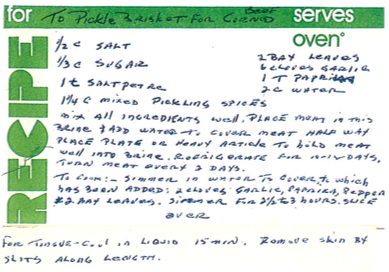 for
serves
To Pickle Brisket for Corned Beef
oven°
RECIPE
1/2 c SALT
2 BAY LEAVES
1/3 c SUGAR
6 cloves GARLIC
1 t SALTPETRE
1 T PAPRIKA
2 c WATER
1 1/4 c MIXED PICKLING SPICES
Mix ALL INGREDIENTS WELL. PLACE MEAT IN THIS
BRINE & ADD WATER TO COVER MEAT HALF WAY
PLACE PLATE OR HEAVY ARTICLE TO HOLD MEAT
WELL INTO BRINE. REFRIGERATE FOR DAYS,
TURN MEAT EVERY 2 DAYS.
TO COOK:- SIMMER IN WATER TO COVER, TO WHICH
HAS BEEN ADDED: 2 CLOVES GARLIC, PAPRIKA, PEPPER
& 2 BAY LEAVES. SIMMER FOR 2 1/2 - 3 HOURS. SLICE
OVER
FOR TONGUE - COOL IN LIQUID 15 MIN. REMOVE SKIN BY
SLITS ALONG LENGTH.